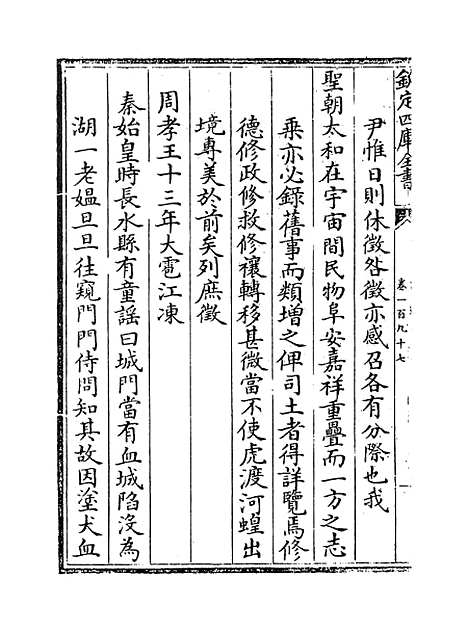 欽定四庫全書
卷一百九十七
尹惟日則休徵咎徵亦感召各有分際也我
聖朝太和在宇宙間民物阜安嘉祥重疊而一方之志
乘亦必錄舊事而類增之俾司土者得詳覽焉修
德修政修救修禳轉移甚微當不使虎渡河蝗出
境專美於前矣列庶徵
周孝王十三年大雹江凍
秦始皇時長水縣有童謠曰城門當有血城陷沒為
湖一老媼旦旦往窺門門侍問知其故因塗犬血